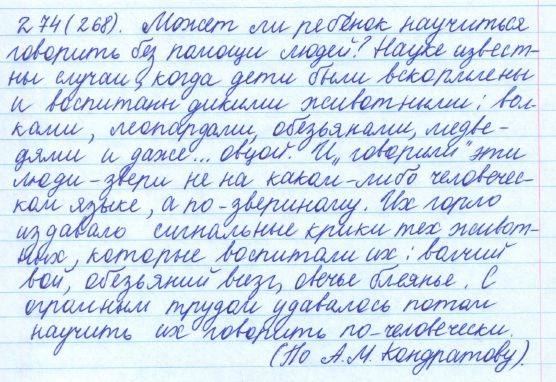 274(268). Может ли ребёнок научиться
говорить без помощи людей? Науке извест-
ны случаи, когда дети были вскормлены
и воспитаны дикими животными: вол-
ками, леопардами, обезьянами, медве-
дями и даже... овцой. И „говорили" эти
люди-звери не на каком-либо человечес-
ком языке, а по-звериному. Их горло
издавало сигнальные крики тех живот-
ных, которые воспитали их: волчий
вой, обезьяний визг, овечье блеянье. С
огромным трудом удавалось потом
научить их говорить по-человечески.
(По А.М. Кондратову).